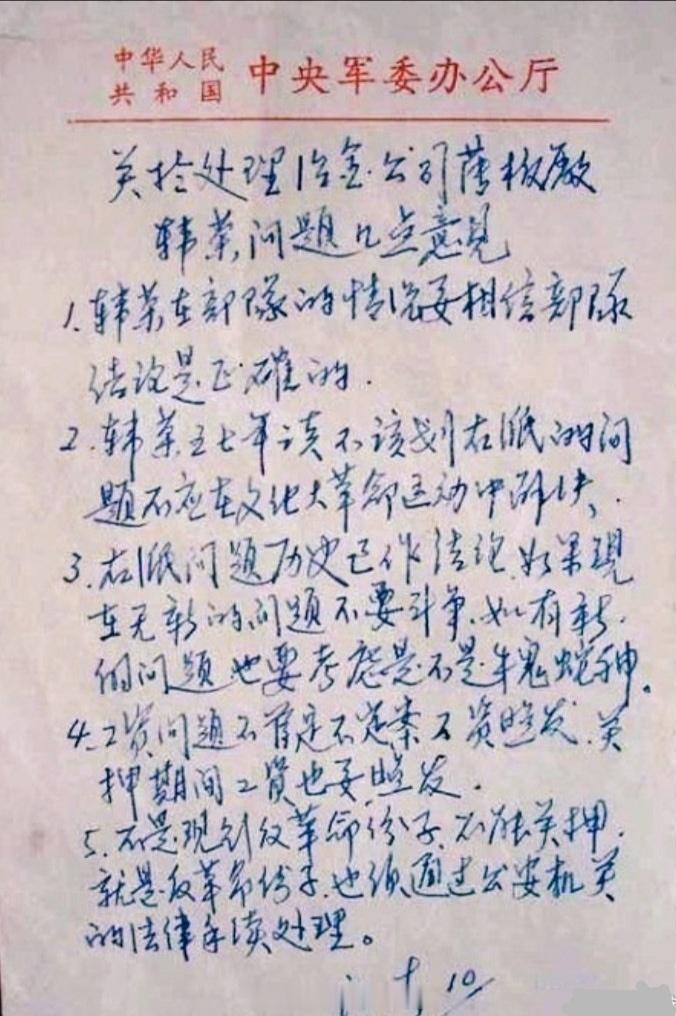 中华人民
共和国 中央军委办公厅
关于处理冶金公司薄板厂
韩荣问题几点意见
1. 韩荣在部隊的情况要相信部队
结论是正确的.
2. 韩荣五七年该不该划右派的问
题不应在文化大革命运动中解决,
3. 右派问题历史已作结论.如果現
在无新的问题不要斗争.如有新.
的问题也要考虑是不是牛鬼蛇神。
4. 工资问题不管定不定案工资照发.关
押期间工资也要照发.
5. 不是现行反革命份子.不能关押.
就是反革命份子.也须通过公安机关
的法律手续处理。
10